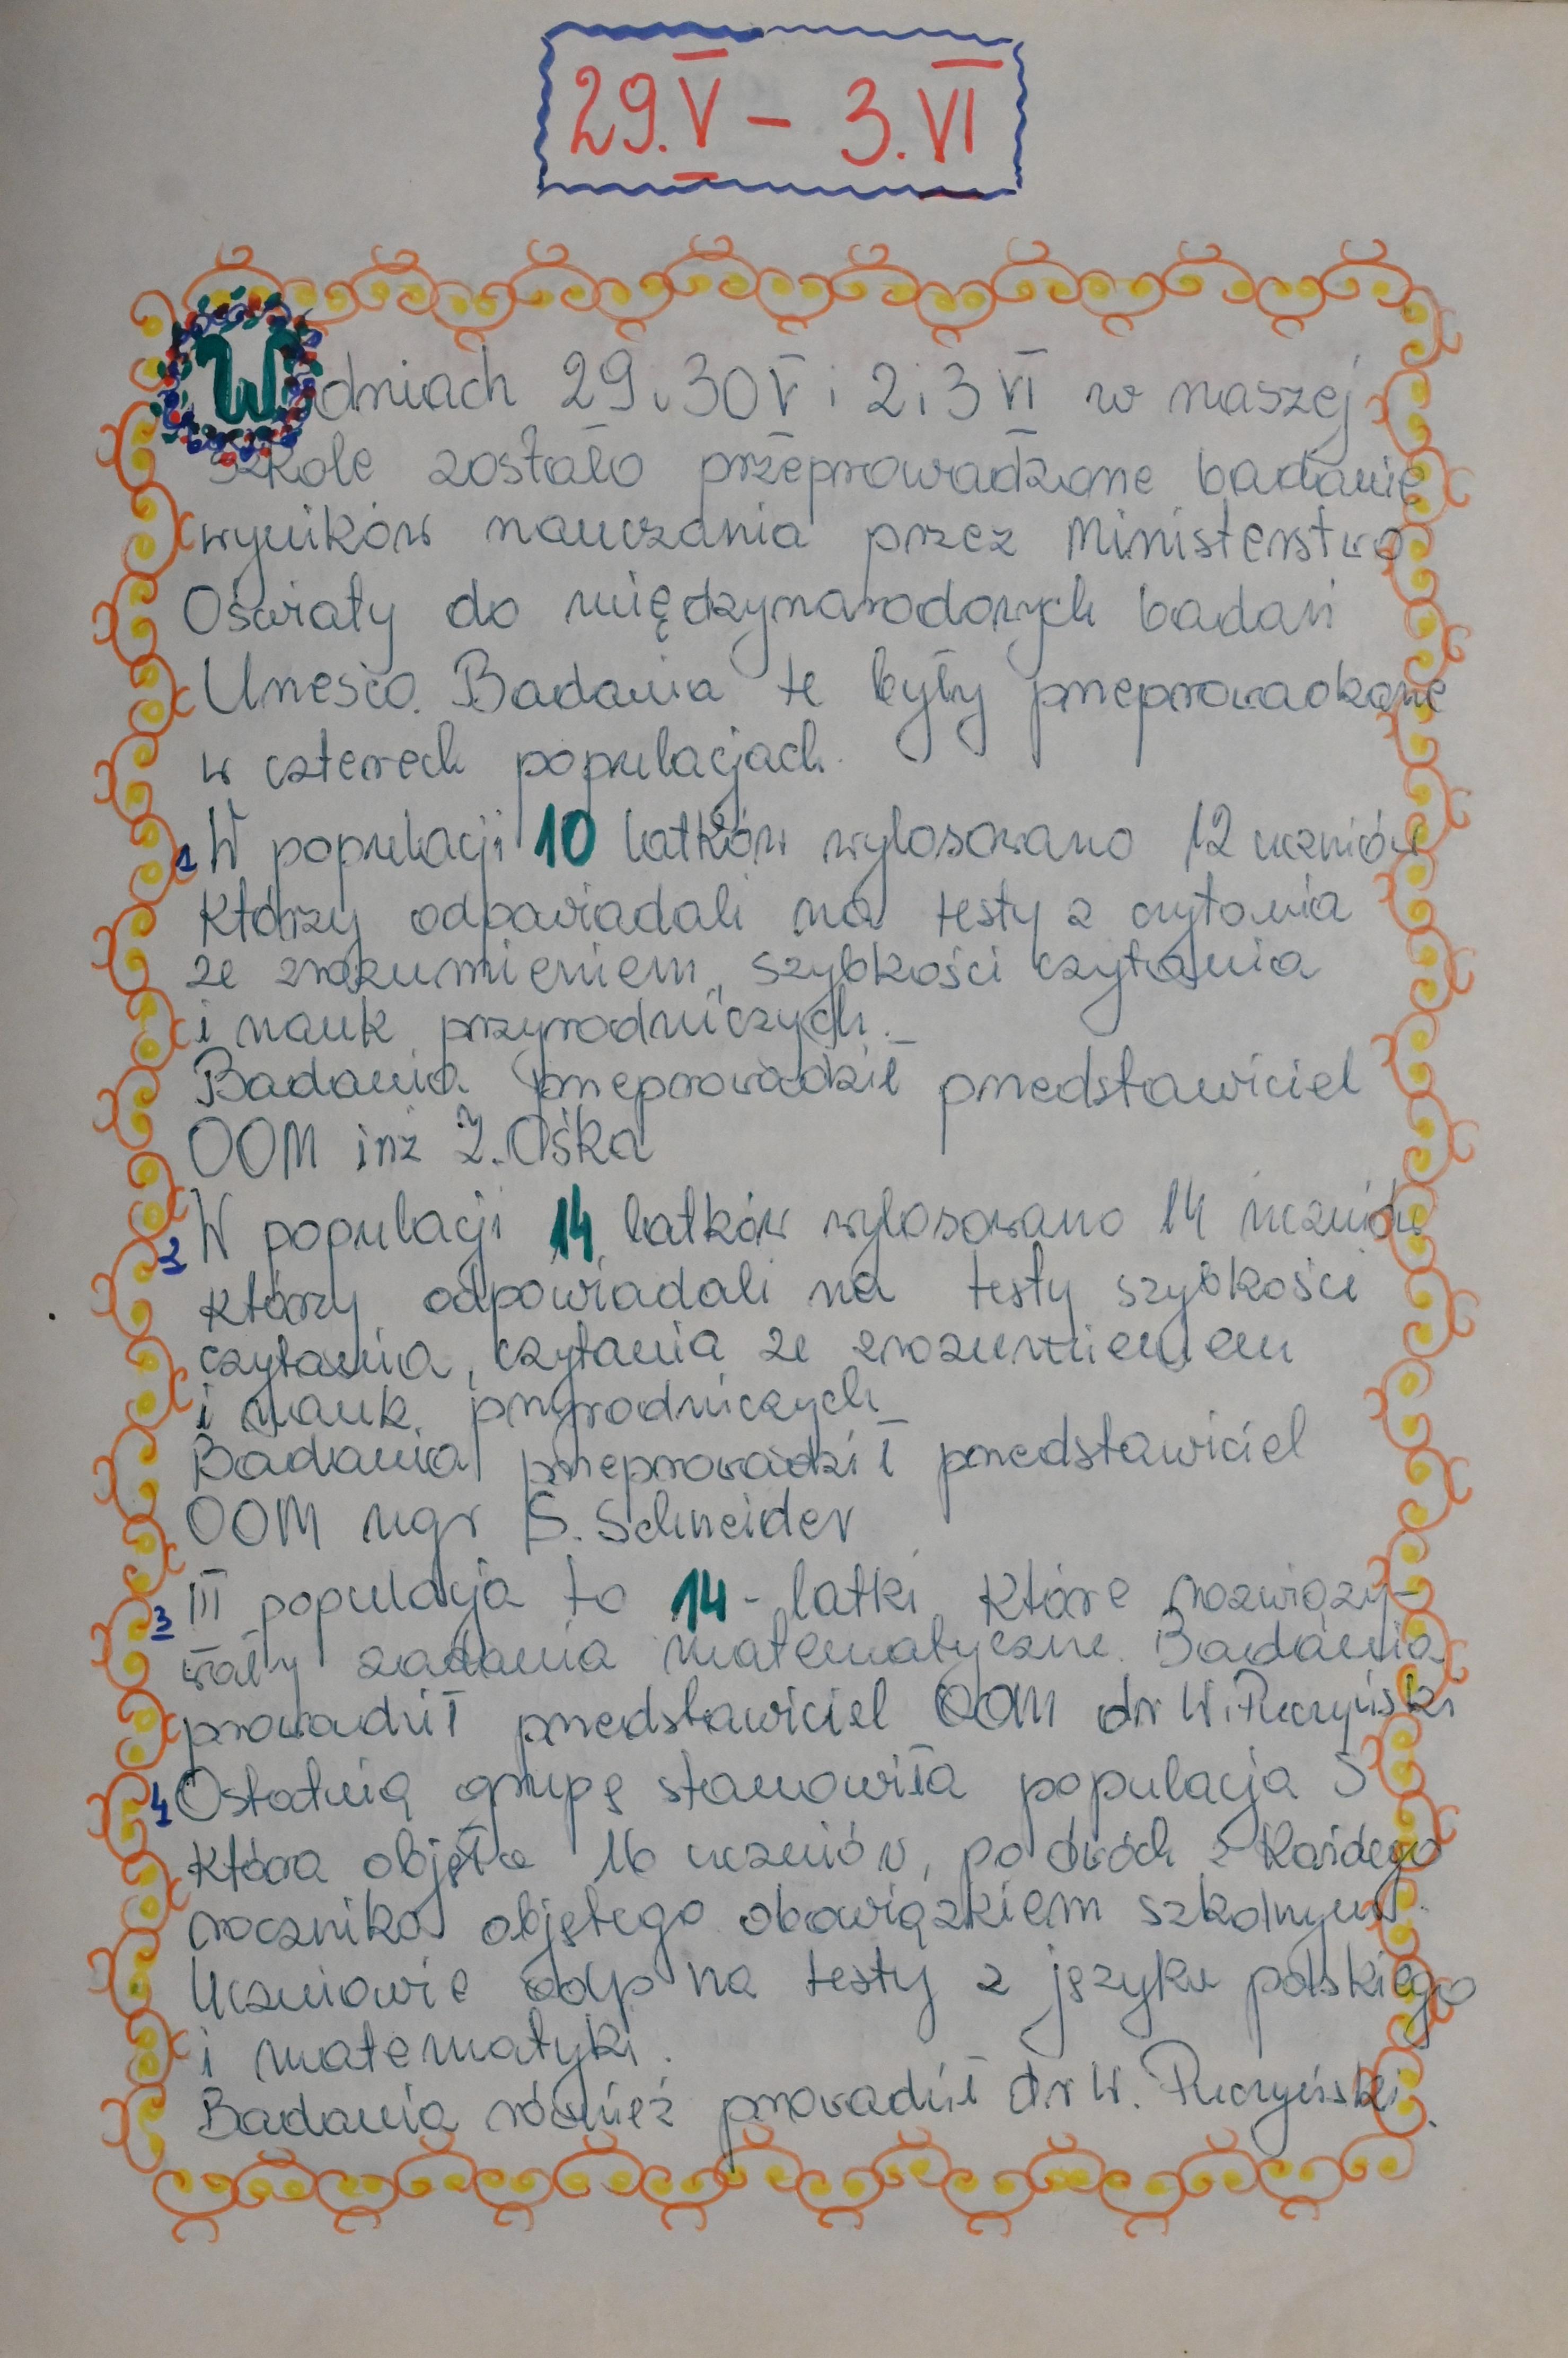 29.V - 3.VI
W dniach 29 i 30 V i 2 i 3 VI w naszej
szkole zostało przeprowadzone badanie
wyników nauczania przez Ministerstwo
Oświaty do międzynarodowych badań
Unesco. Badania te były przeprowadzone
w czterech populacjach.
1 W populacji 10 latków wylosowano 12 uczniów
którzy odpowiadali na testy z czytania
ze zrozumieniem, szybkości czytania
i nauk przyrodniczych.
Badania przeprowadził przedstawiciel
OOM inż Z. Ośka
2 W populacji 14 latków wylosowano 14 uczniów
którzy odpowiadali na testy szybkości
czytania, czytania ze zrozumieniem
i nauk przyrodniczych
Badania przeprowadził przedstawiciel
OOM mgr S. Schneider
3 III populacja to 14 - latki, które rozwiązy-
wały zadania matematyczne. Badania
prowadził przedstawiciel OOM dr W. Puczyński
4 Ostatnią grupę stanowiła populacja S
która objęła 16 uczniów, po dwóch z każdego
rocznika objętego obowiązkiem szkolnym.
Uczniowie odp na testy z języka polskiego
i matematyki.
Badania również prowadził dr W. Puczyński.